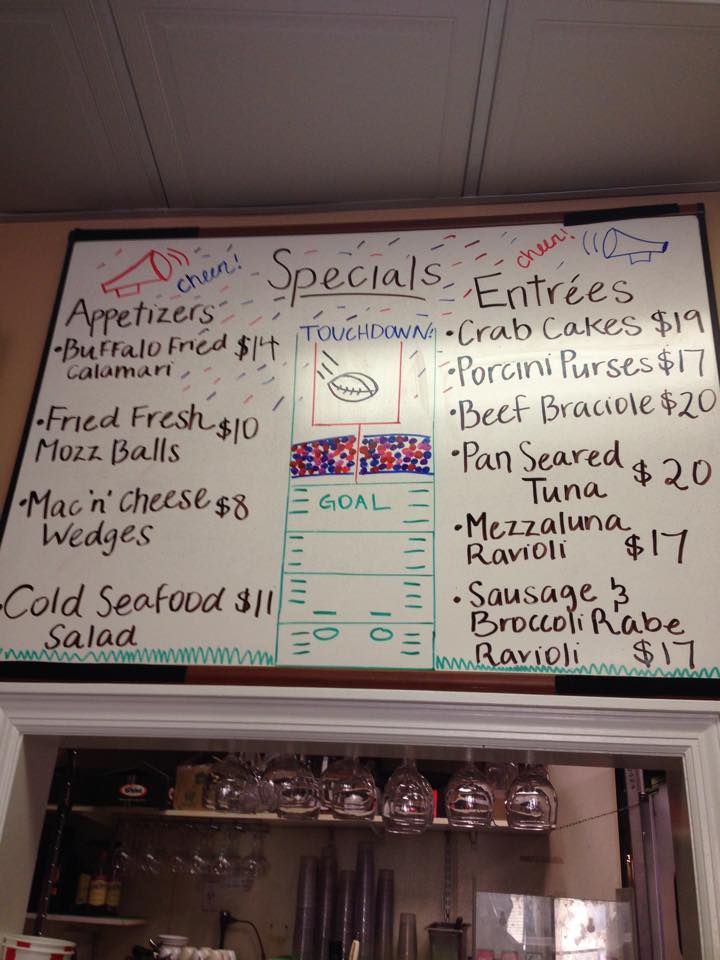 Specials
cheer!
Appetizers
•Buffalo Fried $14
Calamari
•Fried Fresh $10
Mozz Balls
•Mac 'n' Cheese $8
Wedges
•Cold Seafood $11
Salad
TOUCHDOWN!
GOAL
cheer!
Entrées
•Crab Cakes $19
•Porcini Purses $17
•Beef Braciole $20
•Pan Seared
Tuna $20
•Mezzaluna
Ravioli $17
•Sausage &
Broccoli Rabe
Ravioli $17